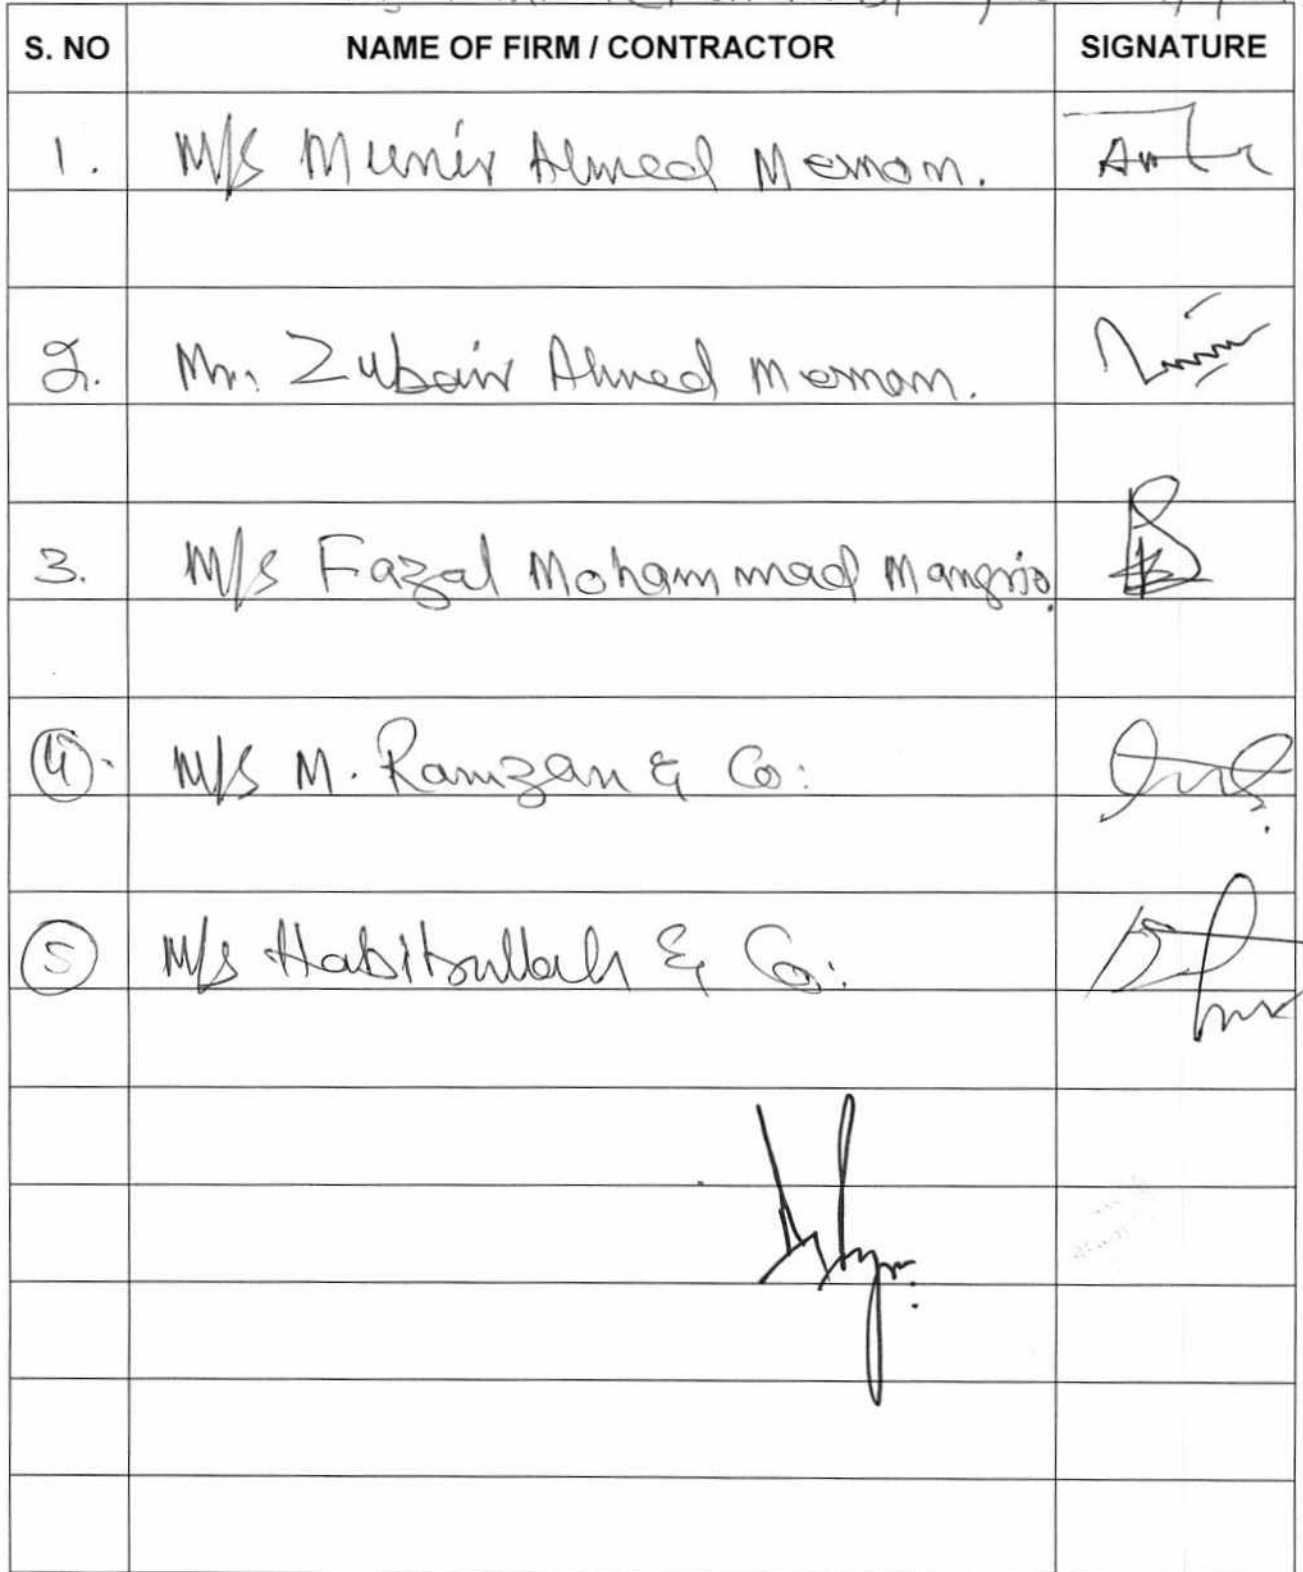 S. NO NAME OF FIRM / CONTRACTOR SIGNATURE
1. M/S Munir Ahmed Memon.
2. Mr. Zubair Ahmed Memon.
3. M/s Fazal Mohammad Mangrio.
4. M/S M. Ramzan & Co:
5 M/s Habibullah & Co: